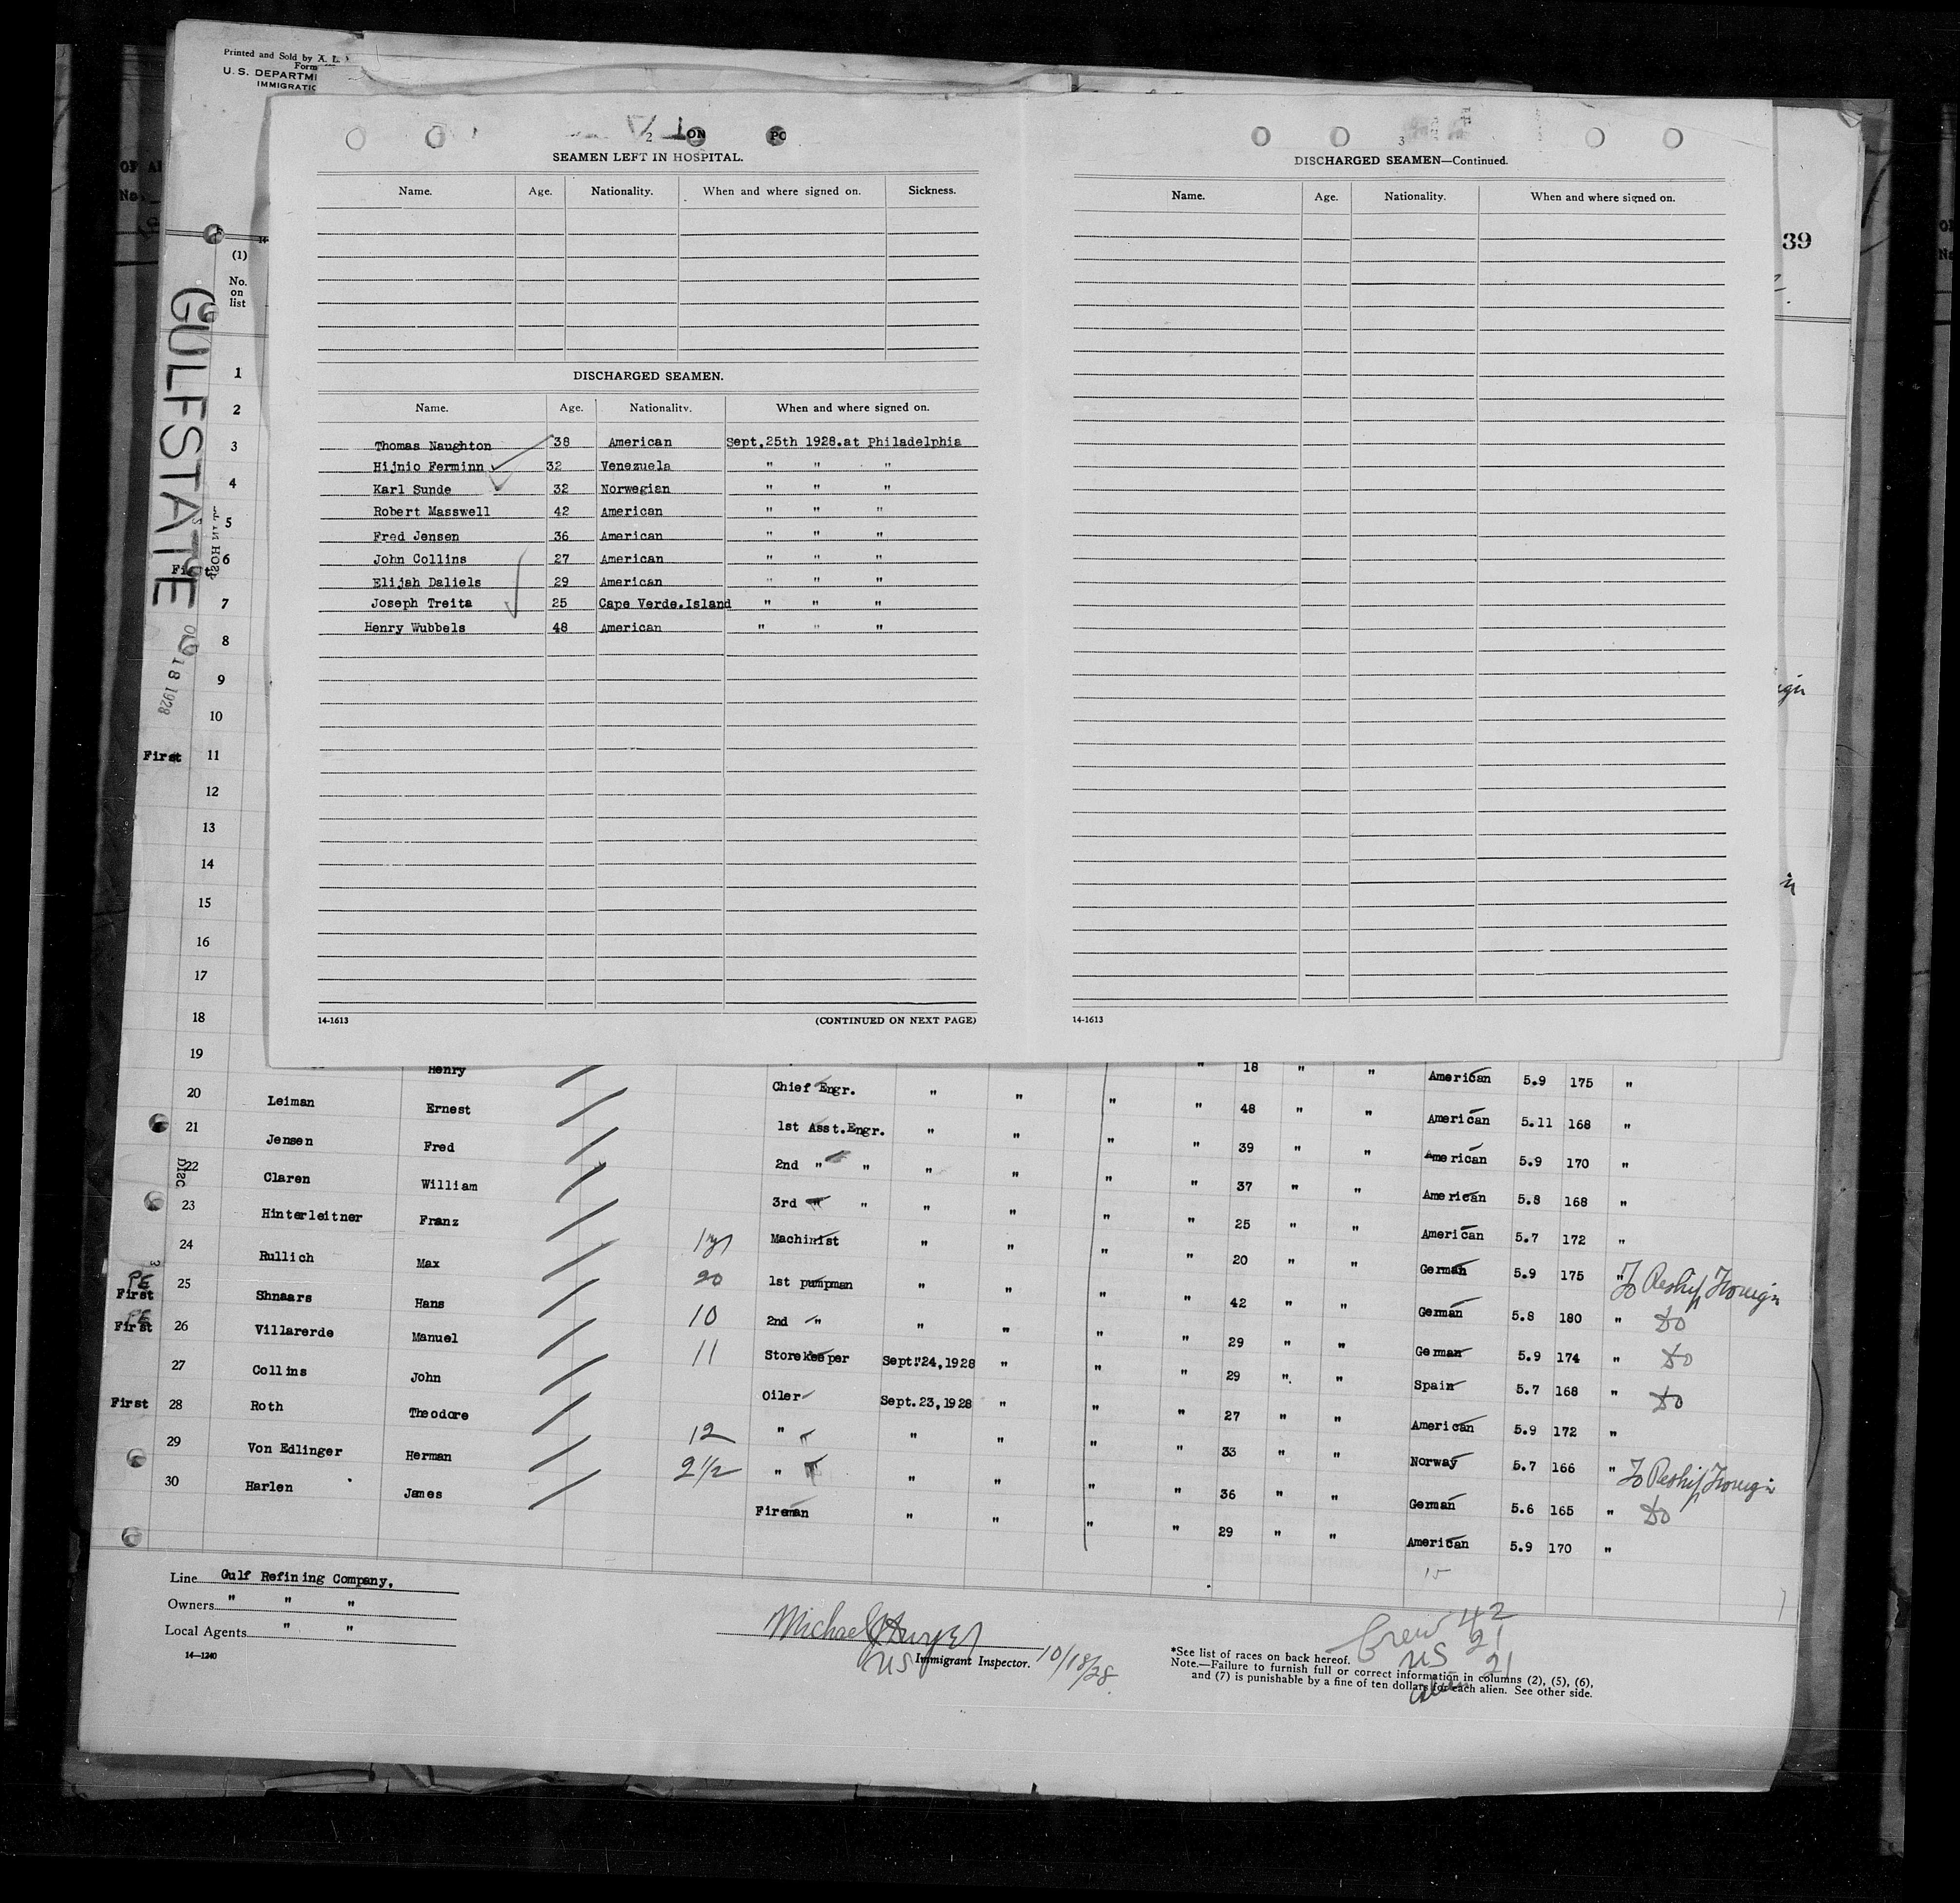 Printed and Sold by A. L.
Form
U. S. DEPARTM
IMMIGRATIO
2
ON
PO
SEAMEN LEFT IN HOSPITAL.
Name. Age. Nationality. When and where signed on. Sickness.
DISCHARGED SEAMEN.
Name. Age. Nationality. When and where signed on.
Thomas Naughton 38 American Sept.25th 1928.at Philadelphia
Hijnio Ferminn 32 Venezuela " " "
Karl Sunde 32 Norwegian " " "
Robert Masswell 42 American " " "
Fred Jensen 36 American " " "
John Collins 27 American " " "
Elijah Daliels 29 American " " "
Joseph Treita 25 Cape Verde.Island " " "
Henry Wubbels 48 American " " "
14-1613 (CONTINUED ON NEXT PAGE)
3
DISCHARGED SEAMEN—Continued.
Name. Age. Nationality. When and where signed on.
14-1613
39
(1)
No.
on
list
GULFSTATE
18 1928
1
2
3
4
5
First 6
7
8
9
10
First 11
12
13
14
15
16
17
18
19 Henry Chief Engr. " " " " 18 " " American 5.9 175 "
20 Leiman Ernest 1st Asst.Engr. " " " " 48 " " American 5.11 168 "
21 Jensen Fred 2nd " " " " " " 39 " " American 5.9 170 "
DISC 22 Claren William 3rd " " " " " " 37 " " American 5.8 168 "
23 Hinterleitner Franz Machinist " " " " 25 " " American 5.7 172 "
24 Rullich Max 20 1st pumpman " " " " 20 " " German 5.9 175 " To Reship Foreign
PE First 25 Shnaars Hans 10 2nd " " " " " 42 " " German 5.8 180 " Do
PE First 26 Villarerde Manuel 11 Storekeeper Sept.24,1928 " " " 29 " " German 5.9 174 " Do
27 Collins John Oiler Sept.23,1928 " " " 29 " " Spain 5.7 168 " Do
First 28 Roth Theodore 12 " " " " " 27 " " American 5.9 172 "
29 Von Edlinger Herman 2 1/2 " " " " " 33 " " Norway 5.7 166 " To Reship Foreign
30 Harlen James Fireman " " " " 36 " " German 5.6 165 " Do
29 " " American 5.9 170 "
15
Line Gulf Refining Company,
Owners " " "
Local Agents " "
14—1240
Michael
US Immigrant Inspector. 10/18/28.
Crew 42
US 21
alien 21
*See list of races on back hereof.
Note.—Failure to furnish full or correct information in columns (2), (5), (6),
and (7) is punishable by a fine of ten dollars for each alien. See other side.